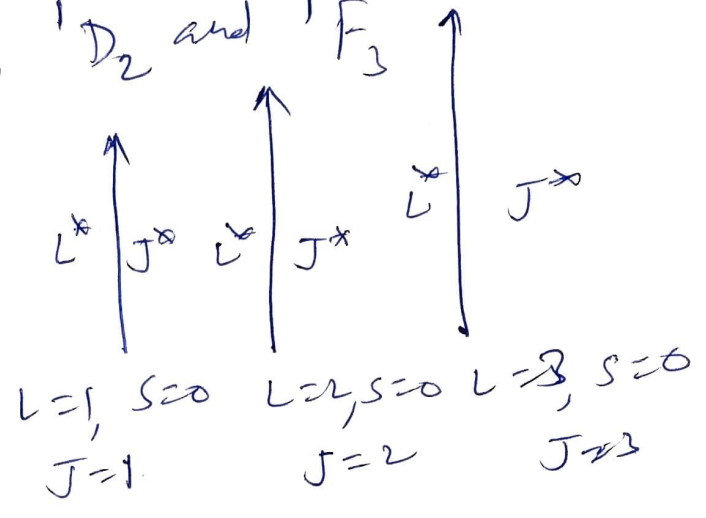 ¹D₂ and ¹F₃
L* J* L* J* L* J*
L=1, S=0 L=2, S=0 L=3, S=0
J=1 J=2 J=3